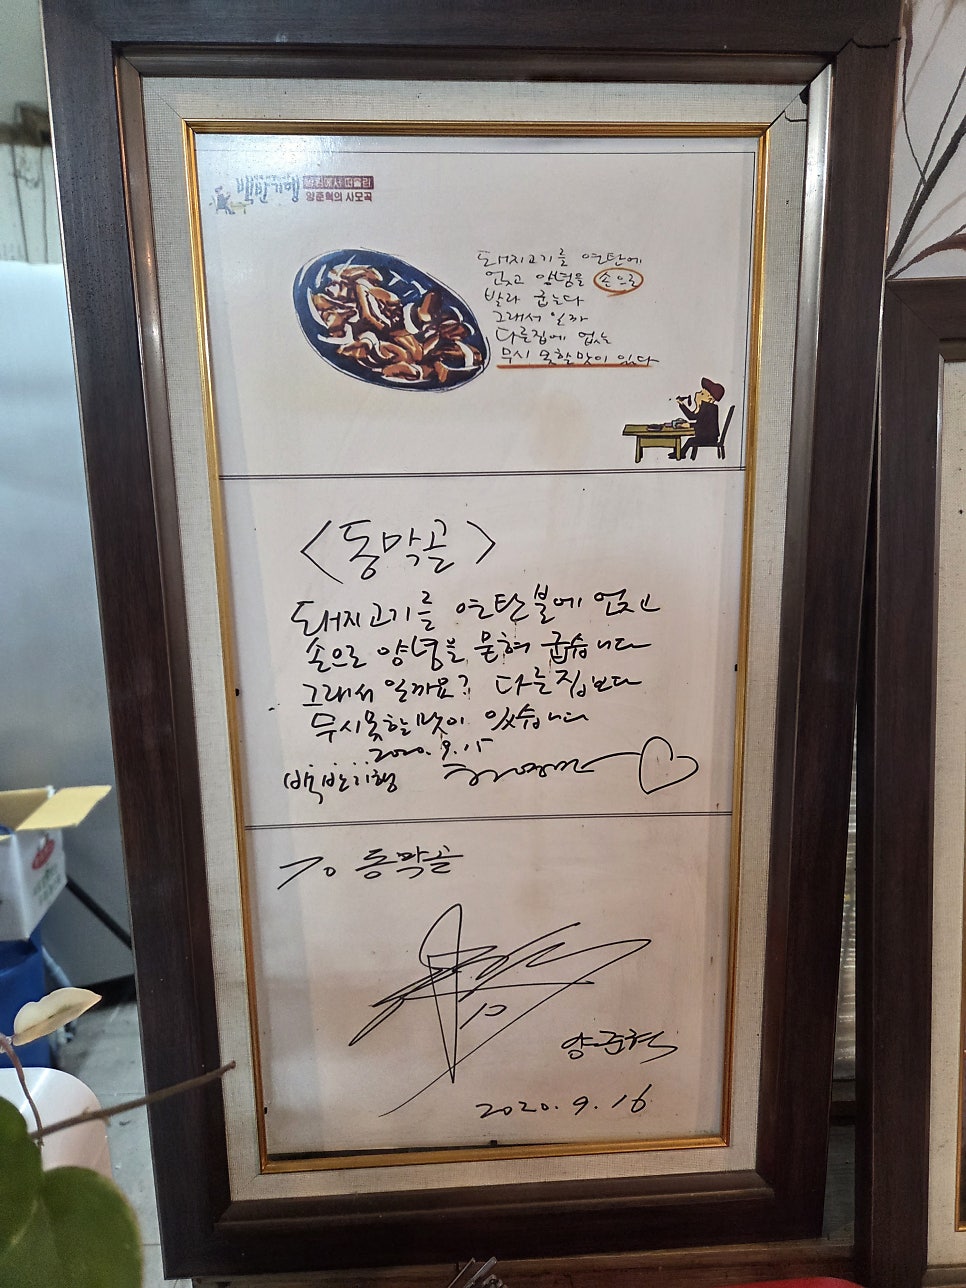 백반기행
양준혁의 사모곡
돼지고기를 연탄에
얹고 양념을 손으로
발라 굽는다
그래서 일까
다른집에 없는
무시 못할 맛이 있다
<동막골>
돼지고기를 연탄불에 얹고
손으로 양념을 묻혀 굽습니다
그래서 일까요? 다른집보다
무시못할 맛이 있습니다
2020. 9. 15
백반기행
동막골
10
양준혁
2020. 9. 16